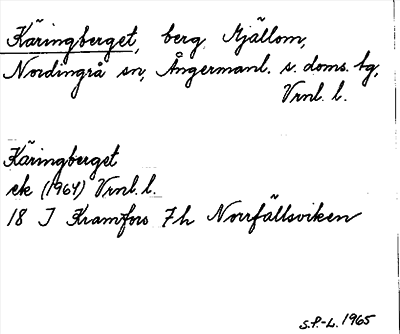 Käringberget, berg, Mjällom,
Nordingrå sn, Ångermanl. s. doms. tg,
Vrnl. l.
Käringberget
ek (1964) Vrnl. l.
18 I Kramfors 7h Norrfällsviken
S.P.-L. 1965